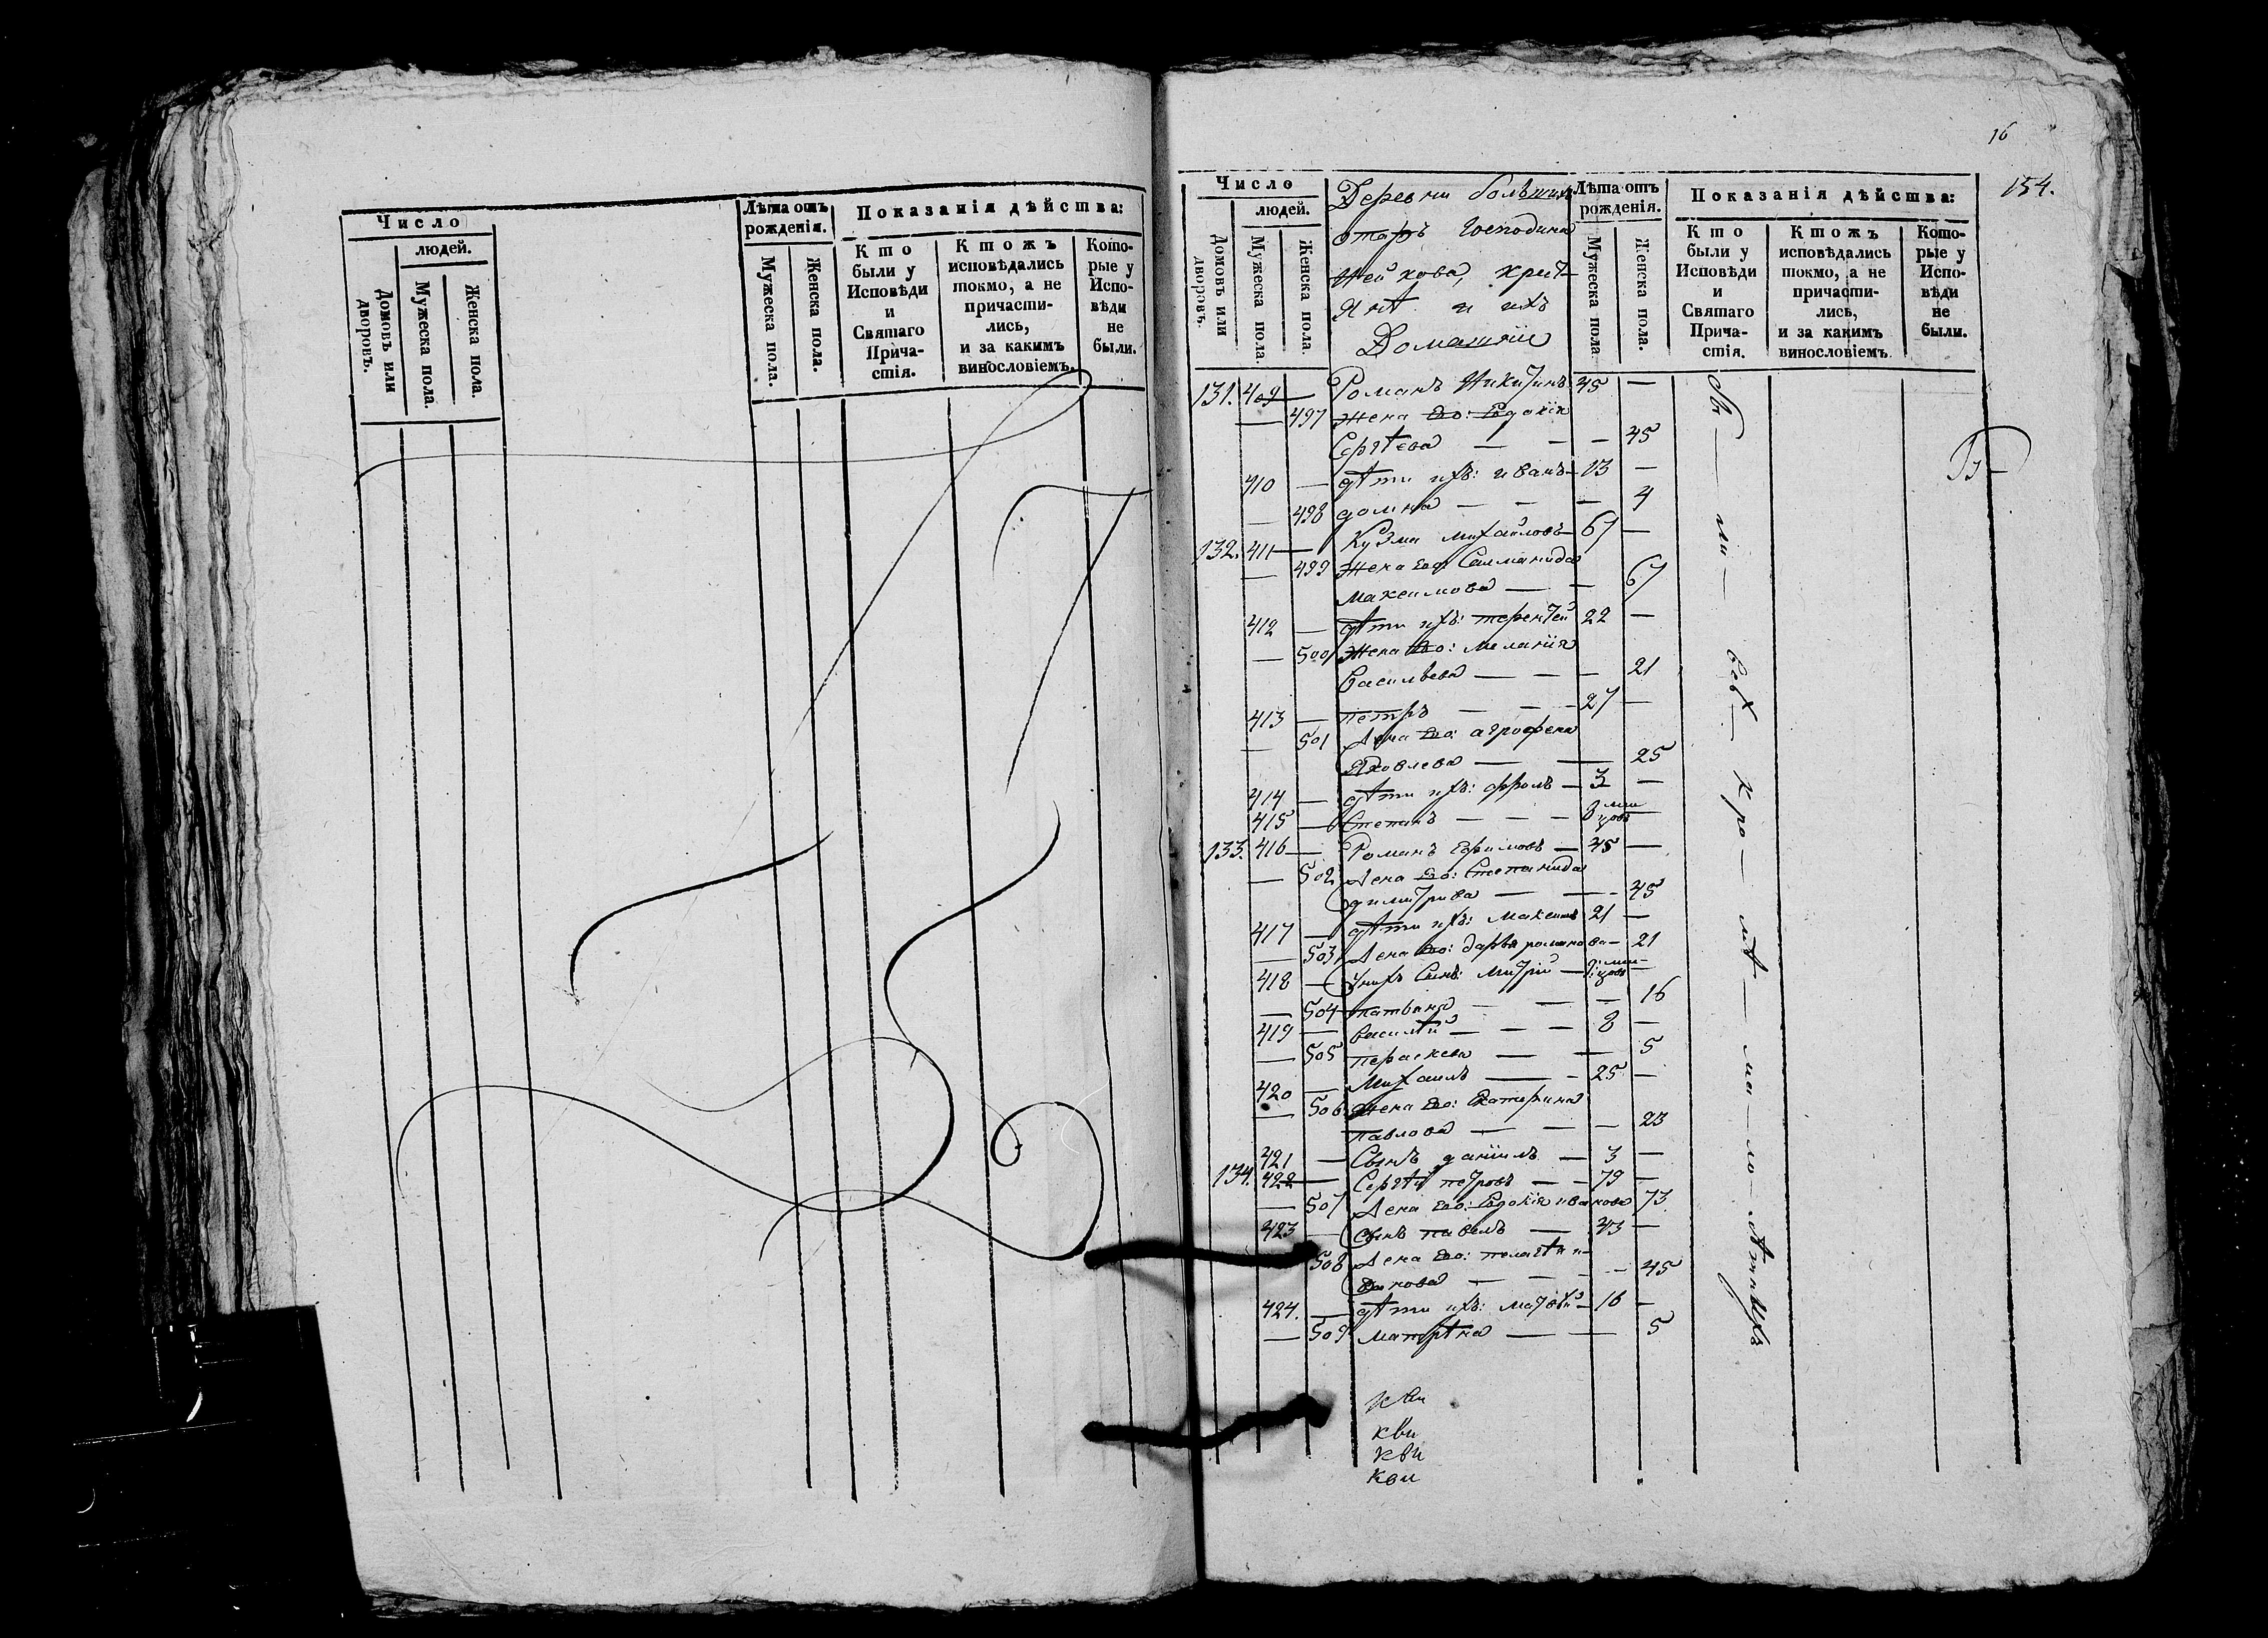 Число
людей.
Домовъ или дворовъ.
Мужеска пола.
Женска пола.
Лѣта отъ рожденія.
Мужеска пола.
Женска пола.
Показанія дѣйства:
Кто были у Исповѣди и Святаго Прича-стія.
Ктожъ исповѣдались токмо, а не причасти-лись, и за какимъ винословіемъ.
Кото-рые у Испо-вѣди не были.
16
154.
Число
людей.
Домовъ или дворовъ.
Мужеска пола.
Женска пола.
Деревни большихъ
отаръ Господина
крит
янъ и ихъ
Домашніи
Лѣта отъ рожденія.
Мужеска пола
Женска пола.
Показанія дѣйства:
Кто были у Исповѣди и Святаго Прича-стія.
Ктожъ исповѣдались токмо, а не причасти-лись, и за какимъ винословіемъ
Кото-рые у Испо-вѣди не были.
131. 409 — Романъ Никитинъ 45 —
— 497 Жена Его: Евдокія
Сергѣева — — — 45
410 — дѣти ихъ: иванъ — 13 —
— 498 домна — — — 4
132. 411 — Кузма михайловъ — 67 —
— 499 Жена Его: Саламанида
Максимова — — 67
412 — дѣти ихъ: терентей 22 —
— 500 Жена Его: меланія
Васильева — — — 21
413 — петръ — — — 27 —
— 501 Жена Его: агрофена
Яковлева — — 25
414 — дѣти ихъ: фролъ — 3 —
415 — Степанъ — — — 8 мѣсяцовъ
133. 416 — Романъ Ефимовъ — 45 —
— 502 Жена Его: Степанида
димитрива — — 45
417 — дѣти ихъ: Максимъ 21 —
— 503 Жена Его: дарья романова — 21
418 — унихъ Сынъ: митрій —
— 504 татьяна — — — 16
419 — василѣй — — — 8 —
— 505 пераскева — — 5
420 — Михаилъ — — 25 —
— 506 жена Его: Екатерина
павлова — — — 23
421 — Сынъ даніилъ — 3 —
134. 422 — Сергѣй петровъ — — 79 —
— 507 Жена Его: Евдокія иванова 73
423 — Сынъ павелъ — 43 —
508 Жена Его: пелагѣя и-
ванова — — — 45
424. — дѣти ихъ: матвѣй — 16 —
— 509 матрѣна — — 5
кви
кви
кви
— ли — всѣ — кро — мѣ — ма — ло — лѣтныхъ